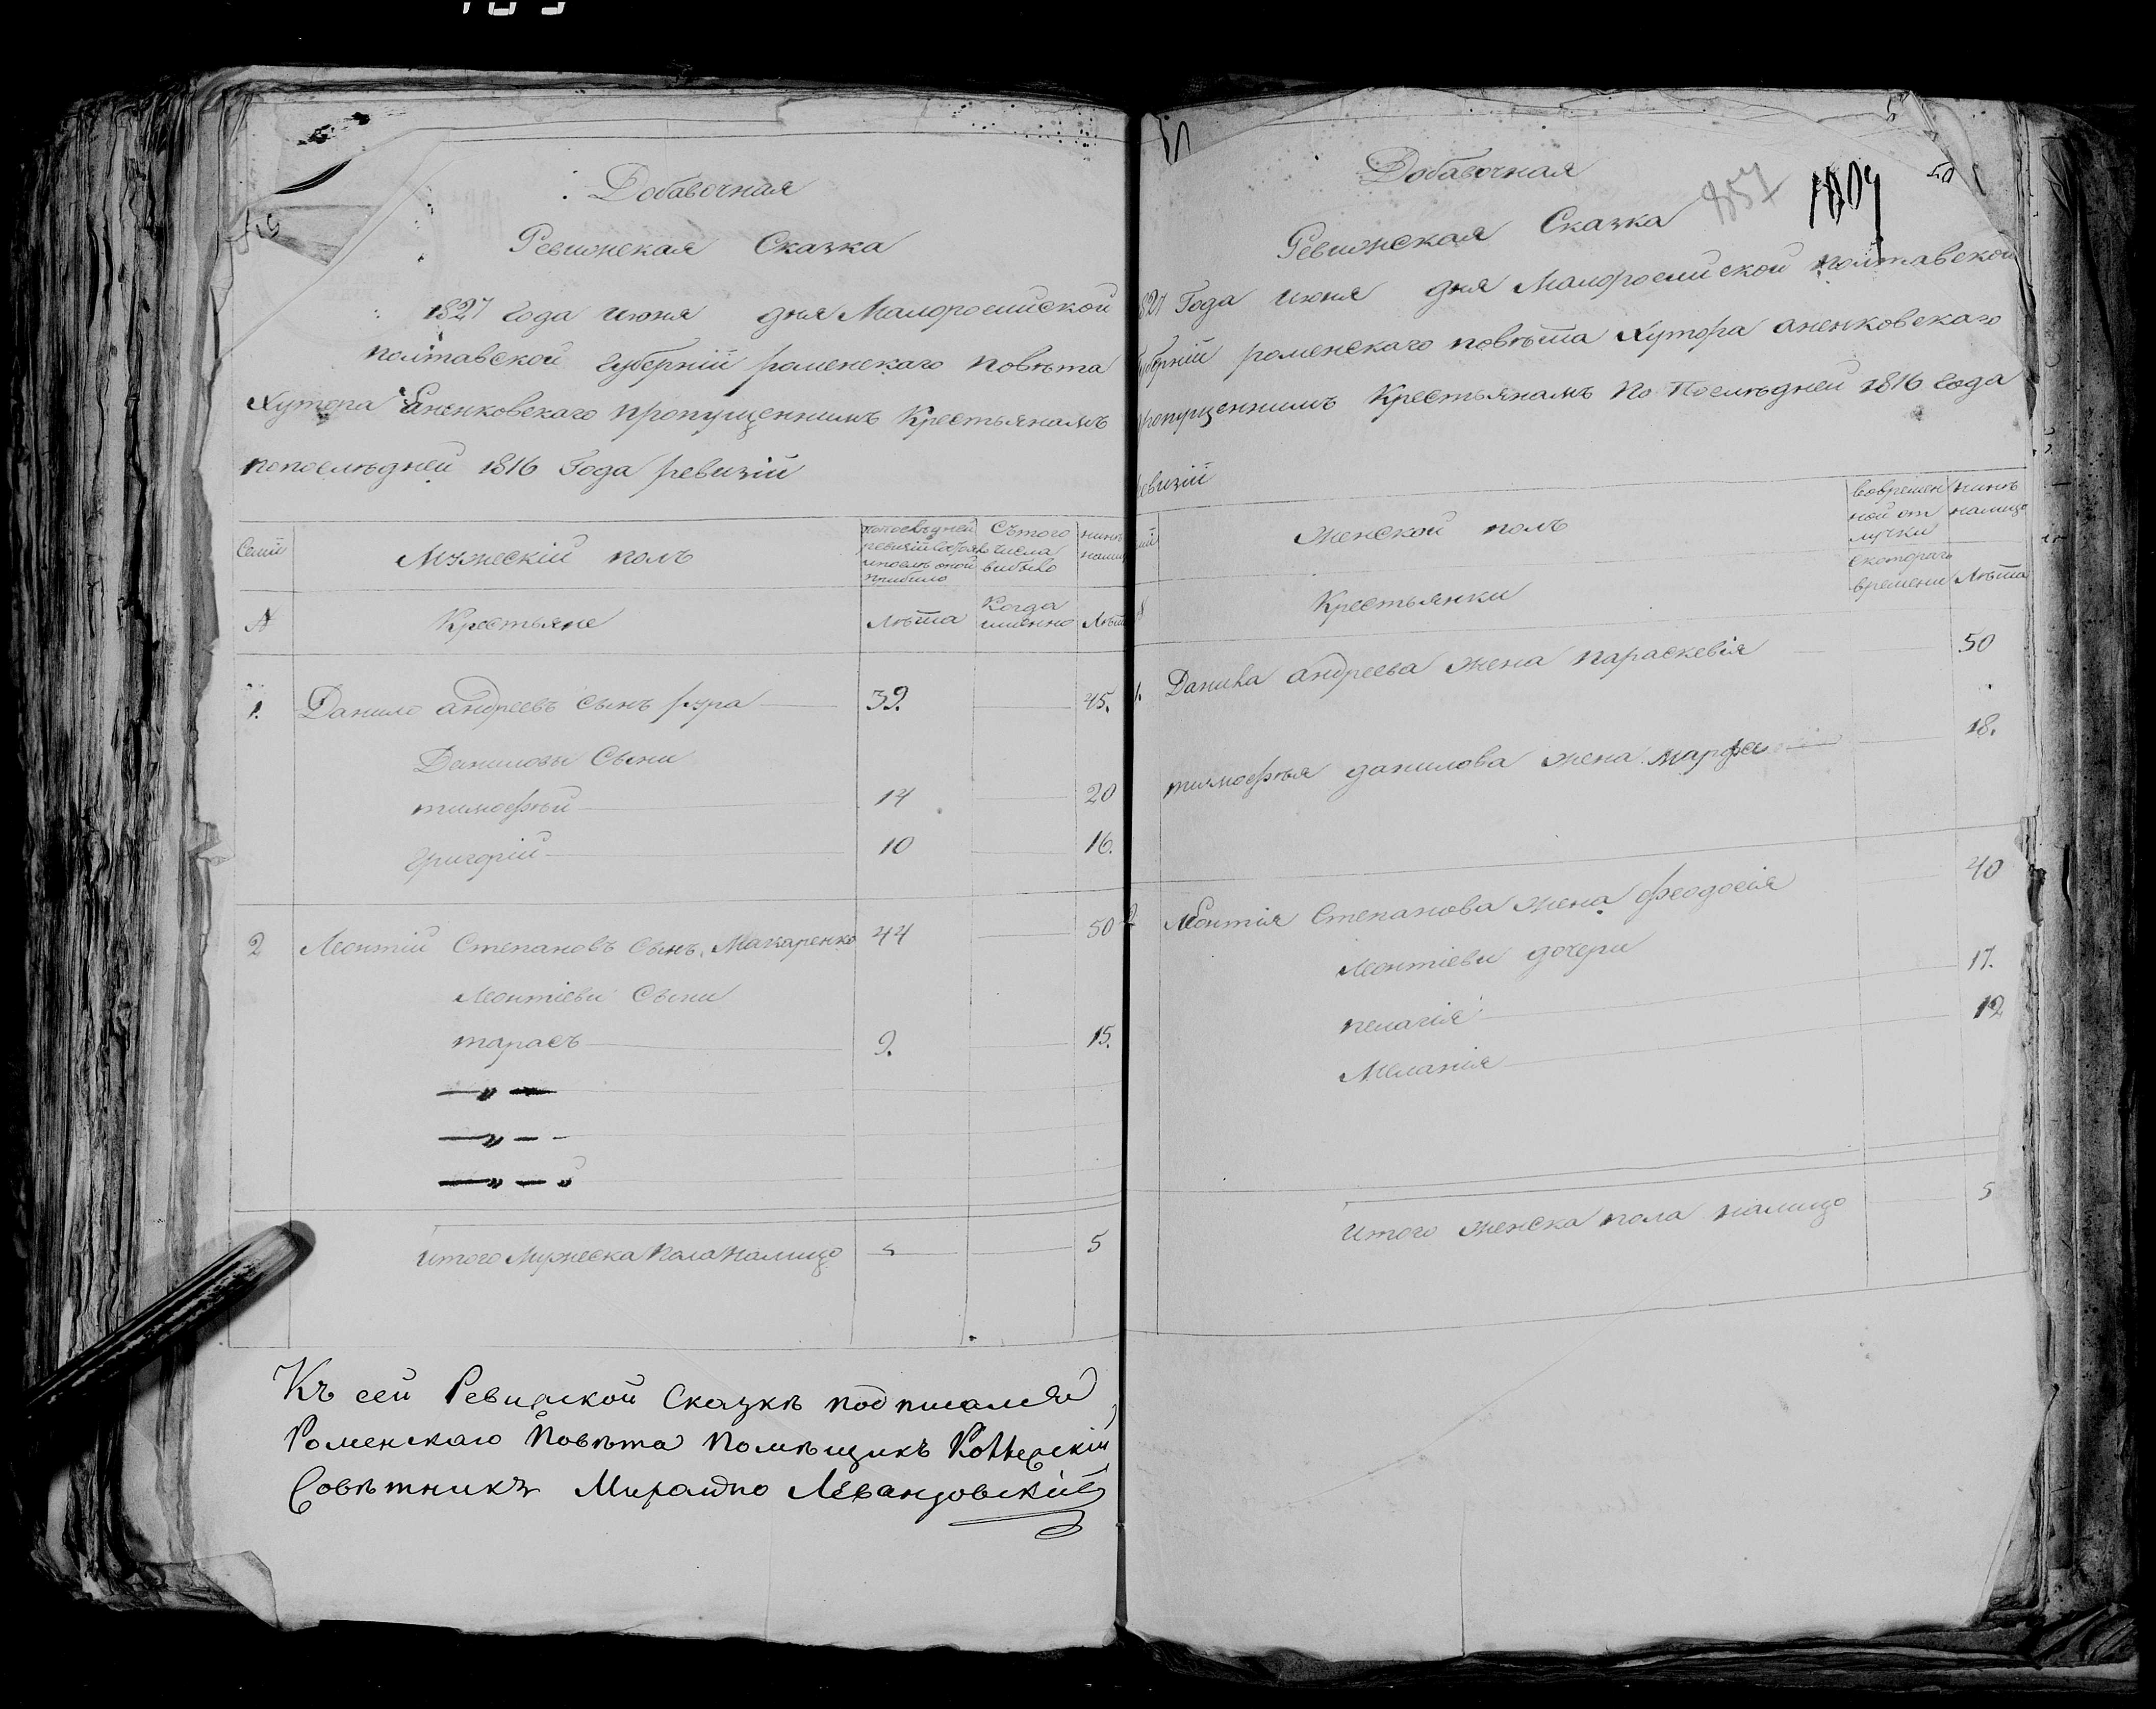 Добавочная
Ревижская Сказка
1827 года июня дня Малоросийской
полтавской губерніи роменскаго повѣта
Хутора Аненковскаго пропущеннимъ Крестьянамъ
попослѣдней 1816 Года ревизіи
Семіи
Мужескій полъ
попослѣдней ревизіи
Съ того числа выбыло
Нинѣ
№
Крестьяне
Лѣта
Когда именно
Лѣта
1. Данило андреевъ сынъ рура 39. 45.
Даниловы Сыни
тимофѣй 14 20
григорій 10 16.
2 Леонтій Степановъ Сынъ Макаренко 44 50
Леонтіеви Сыни
тарасъ 9. 15.
итого Мужеска Пола Налицо 5 5
Къ сей Ревизской Сказкѣ подписался
Роменскаго Повѣта Помѣщикъ
Совѣтникъ Левандовскій
Добавочная
857 1809
Ревижская Сказка
1827 Года июня дня Малоросийской полтавской
губерніи роменскаго повѣта Хутора аненковскаго
пропущеннимъ Крестьянамъ По Послѣдней 1816 года
ревизіи
Женской полъ
вовремен
ной от
лучки
нинѣ
налицо
Крестьянки
скотораго
времени
Лѣта
1. Данила андреева жена параскевія 50
тимофѣя данилова жена марфа 18.
2 Леонтія Степанова жена феодосія 40
Леонтіеви дочери
пелагія 17.
Меланія 12
итого женска пола налицо 5